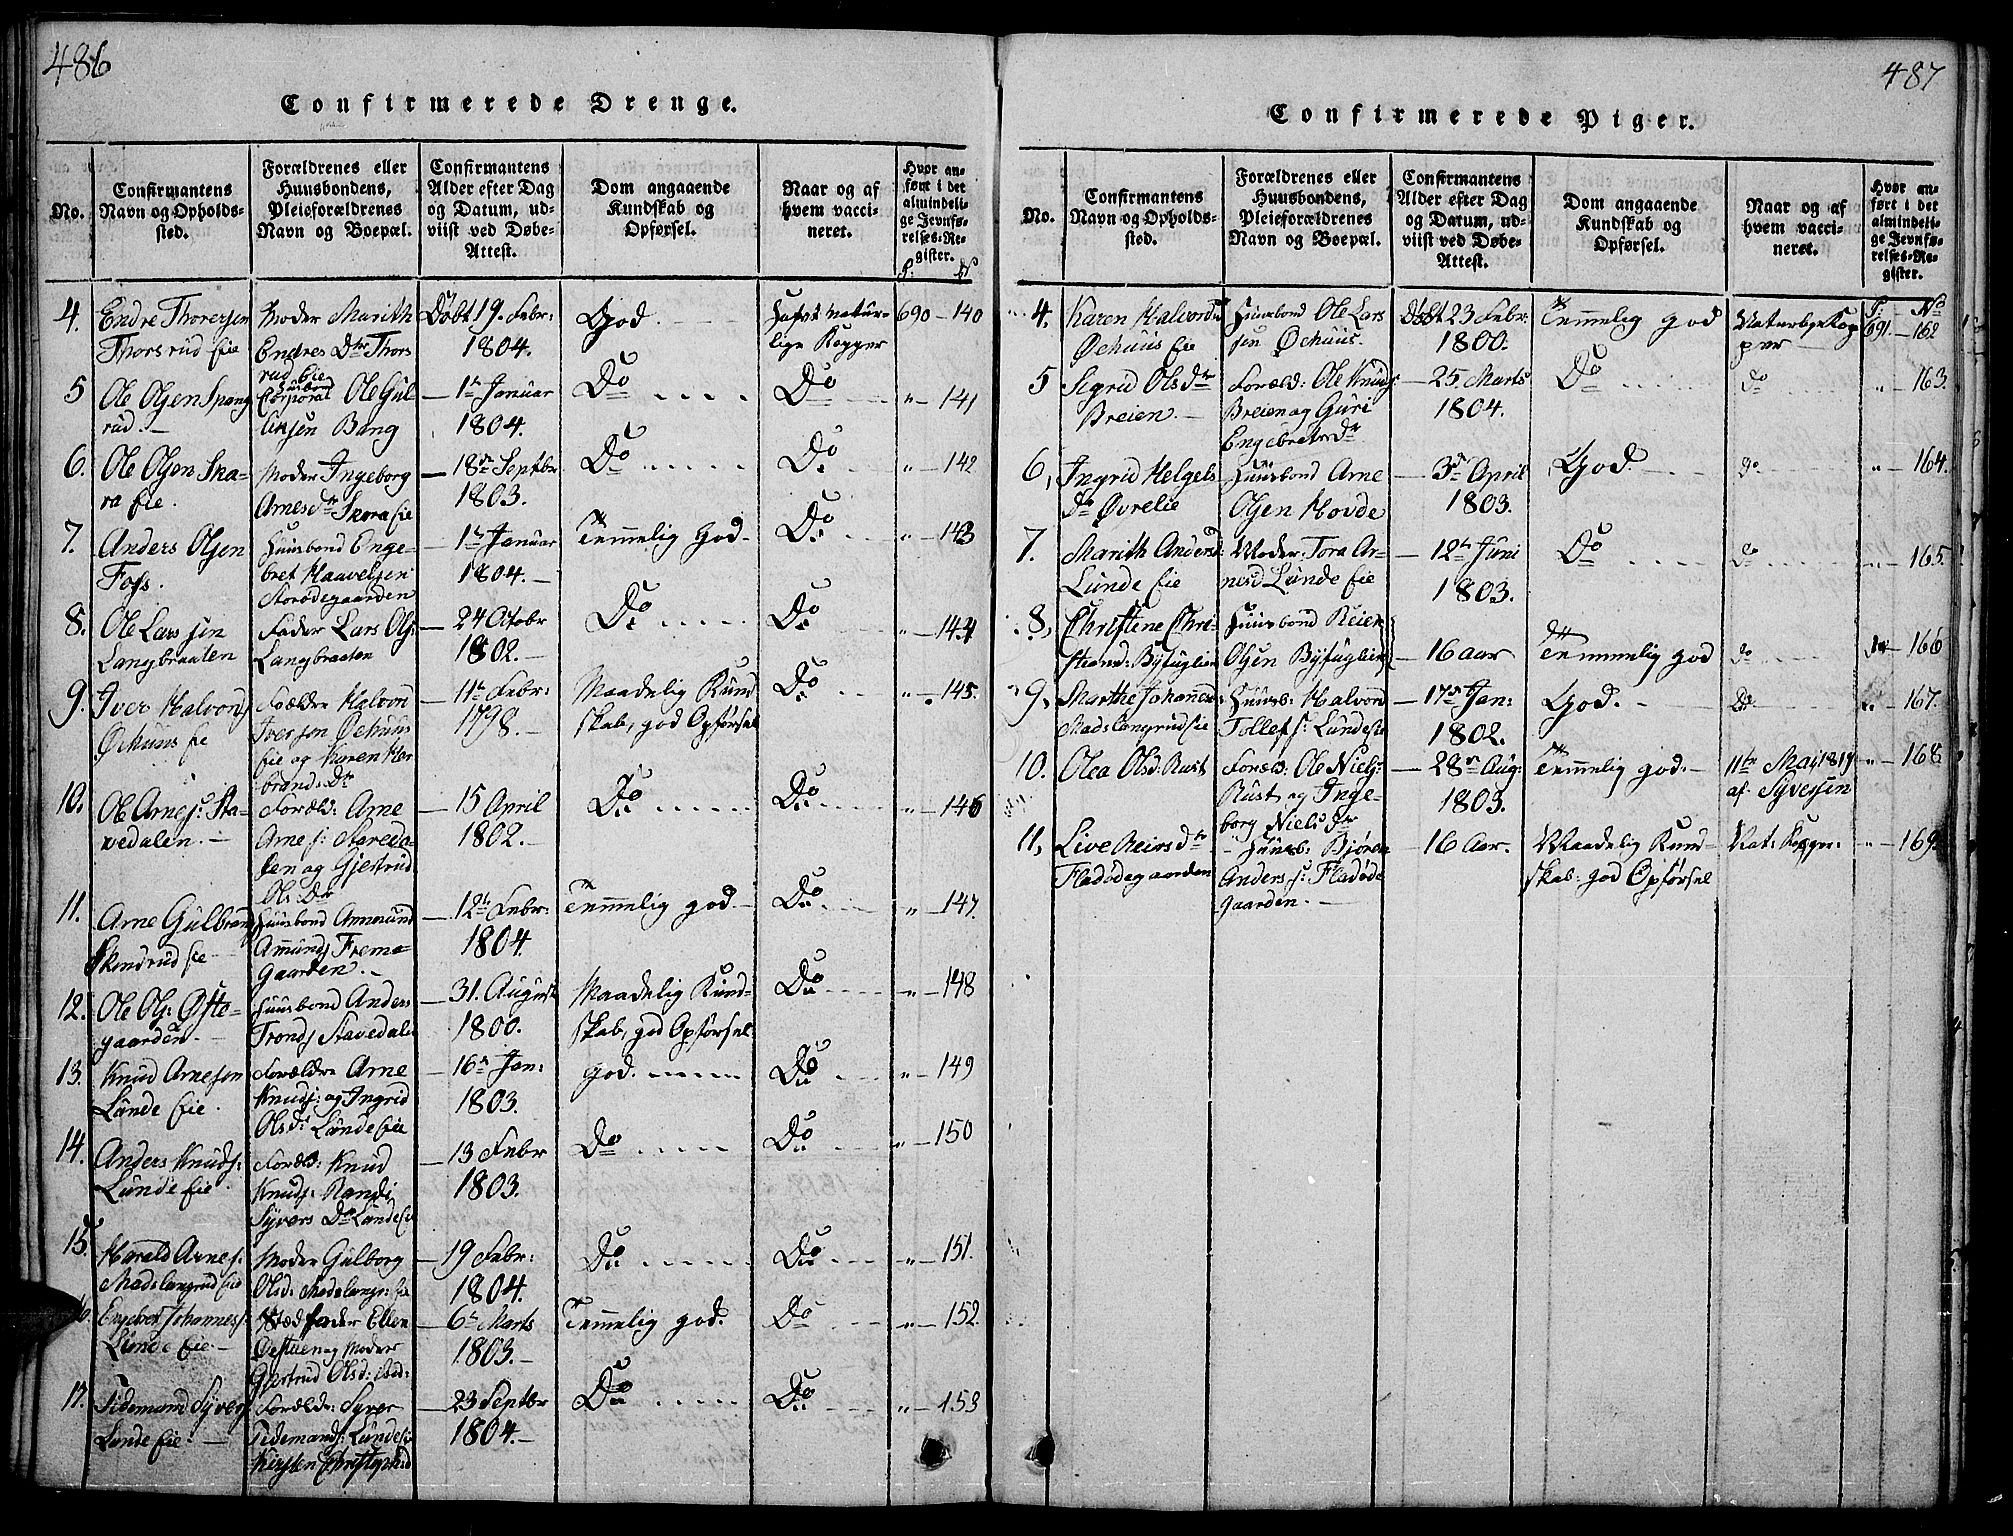 486
Confirmerede Drenge.
No.
Confirmantens
Navn og Opholds-
sted.
Forældrenes eller
Huusbondens,
Pleieforældrenes
Navn og Boepæl.
Confirmantens
Alder efter Dag
og Datum, ud-
viist ved Døbe-
Attest.
Dom angaaende
Kundskab og
Opførsel.
Naar og af
hvem vacci-
neret.
Hvor an-
ført i det
almindeli-
ge Jevnfø-
relses-Re-
gister.
P: N
4. Endre Thoresen
Thorsrud Eie
Moder Marith
Endres Dtr Thors
rud Eie
Døbt 19. Febr:
1804.
God
Havt natur-
lige Kopper
690 - 140
5 Ole Olsen Spang
rud.
Huusbond
Corporal Ole Gul
liksen Bang
1te Januar
1804.
Do
Do
" - 141
6. Ole Olsen Ska-
ra Eie.
Moder Ingeborg
Arnesdtr Skara Eie
18de Septbr
1803.
Do
Do
" - 142
7. Anders Olsen
Foss.
Huusbond Enge-
bret Haavelsen
Storødegaarden
1te Januar
1804.
Temmelig God
Do
" - 143
8. Ole Lars sen
Langbraaten
Fader Lars Ols:
Langbraaten
24 Octobr
1802.
Do
Do
" - 144
9. Iver Halvors
Øchuus Eie
Forældre Halvor
Iversen Øchuus
Eie og Karen Her
brands Dtr
11te Febr:
1798.
Maadelig Kund
skab, god Opførsel
Do
" - 145.
10. Ole Arnes: Sta-
vedalen.
Foræld: Arne
Arnes: Staveda-
len og Gjertrud
Ols: Dtr
15 April
1802.
Do
Do
" - 146
11. Arne Gulbrands
Skindrud Eie
Huusbond Amund
Amunds Frema-
gaarden.
12te Febr:
1804
Temmelig god.
Do
" - 147
12. Ole Ols: Øfte-
gaarden.
Huusbond Anders
Tronds Stavedalen
31. August
1800.
Maadelig Kund-
skab, god Opførsel
Do
" - 148
13. Knud Arnesen
Lunde Eie.
Forældre Arne
Knuds: og Ingrid
Olsd: Lunde Eie
16de Jan:
1803.
god
Do
" - 149
14. Anders Knuds:
Lunde Eie.
Foræld: Knud
Knuds: Randi
Syvers Dtr Lunde Eie
13 Febr
1803.
Do
Do
" - 150
15. Harald Arnes:
Madslangrud Eie
Moder Gulborg
Olsd: Madslangr: Eie
19 Febr:
1804.
Do
Do
" - 151.
Engebret Johannes:
Lunde Eie
Stedfader Ellen
og Moder
Gjertrud Olsd: ibid:
6te Marts
1803.
Temmelig god.
Do
" - 152
17. Tidemand Syvers
Lunde Eie.
Forældr: Syver
Tidemands: Lunde Eie
Kirsten Christophsd
23 Septbr
1804.
Do
Do
" - 153
487
Confirmerede Piger.
No.
Confirmantens
Navn og Opholds-
sted.
Forældrenes eller
Huusbondens,
Pleieforældrenes
Navn og Boepæl.
Confirmantens
Alder efter Dag
og Datum, ud-
viist ved Døbe-
Attest.
Dom angaaende
Kundskab og
Opførsel.
Naar og af
hvem vacci-
neret.
Hvor an-
ført i det
almindeli-
ge Jevnfø-
relses-Re-
gister.
P: No
4. Karen Halvorsd
Øchuus Eie
Huusbond Ole Lars
sen Øchuus.
Døbt 23 Febr:
1800.
Temmelig god
Naturlige Kop
per
691. - 162
5 Sigrid Olsdtr
Breien.
Foræld: Ole Knuds
Breien og Guri
Engebrets Dtr
25 Marts
1804.
Do
Do
" - 163.
6. Ingrid Helgels
Dtr Øvrelie
Huusbond Arne
Olsen Hovde
3de April
1803.
God
Do
" - 164.
7. Marith Andersd:
Lunde Eie
Moder: Tora Ar-
nesd Lunde Eie
12te Juni
1803.
Do
Do
" - 165.
8. Christine Chri-
stians: Byfuglien
Huusbond Reier
Olsen Byfuglien
16 aar
Temmelig god
Do
" - 166
9. Marthe Johannesd
Madslangrud Eie
Huusb: Halvor
Tollefs: Lunde Eie
17de Jan:
1802.
God.
Do
" - 167.
10. Olea Olsd: Rust
Foræld: Ole Niels:
Rust og Inge-
borg Niels Dtr
28de Aug:
1803.
Temmelig god.
11te Mai 1819
af Syversen
" - 168
11. Live Reiersdtr
Fladødegaarden
Huusb: Bjørn
Anders s: Fladøde
gaarden.
16 Aar.
Maadelig Kund-
skab: god Opførsel
Nat: Kopper:
" - 169